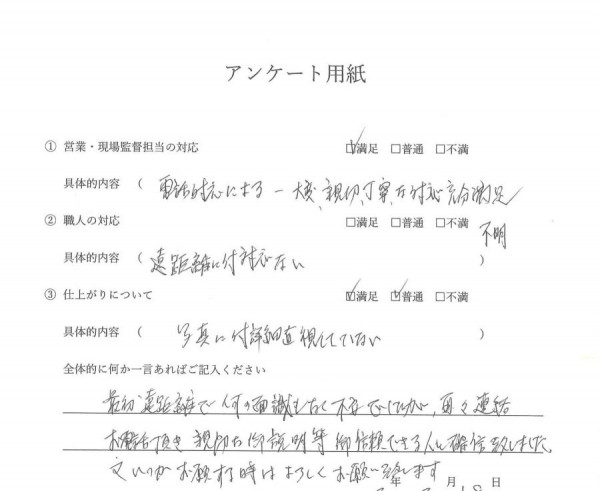 アンケート用紙
① 営業・現場監督担当の対応 ☑満足 □普通 □不満
具体的内容 ( 電話対応による 大変、親切、丁寧な対応充分満足
② 職人の対応 □満足 □普通 □不満
不明
具体的内容 ( 遠距離に付対応ない )
③ 仕上がりについて ☑満足 ☑普通 □不満
具体的内容 ( 写真に付詳細直視していない )
全体的に何か一言あればご記入ください
最初遠距離で何の面識もなく不安でしたが、再々連絡
お電話頂き親切な御説明等御信頼できる人と確信致しました
又いつかお願する時はよろしくお願い致します
年 月 日